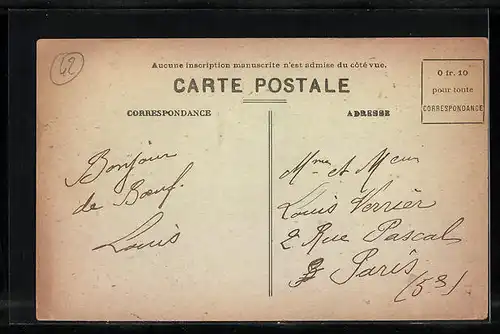 42
Aucune inscription manuscrite n'est admise du côté vue.
CARTE POSTALE
0 fr. 10
pour toute
CORRESPONDANCE
CORRESPONDANCE
ADRESSE
Bonjour
de Bœuf.
Louis
Mme et Meur
Louis Verrier
2 Rue Pascal
Paris
(53)